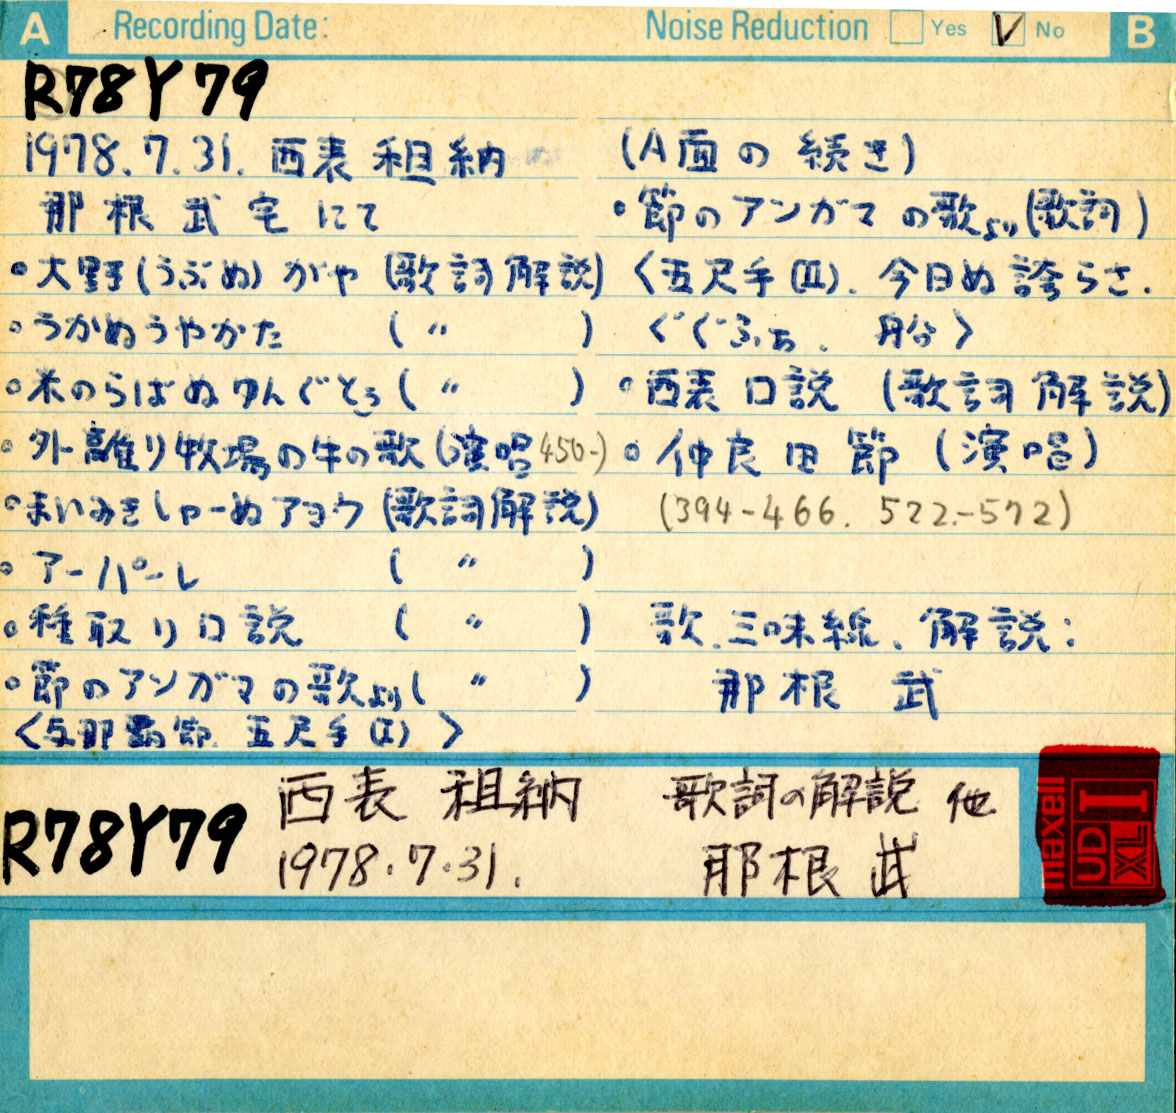 A Recording Date: Noise Reduction Yes No B
R78Y79
1978.7.31. 西表 租納
那根武宅にて
・大野(うぶぬ)がや (歌詞解説)
・うかぬうやかた ( 〃 )
・米のらばぬゆんぐとぅ ( 〃 )
・外離り牧場の牛の歌 (演唱 450-)
・まいみきしゃーぬアヨウ (歌詞解説)
・アーパーレ ( 〃 )
・種取り口説 ( 〃 )
・節のアンガマの歌より ( 〃 )
〈与那覇節. 五尺手(I) 〉
(A面の続き)
・節のアンガマの歌より(歌詞)
〈五尺手(II). 今日ぬ誇らさ.
ぐぐふぁ. 舟谷〉
・西表口説 (歌詞解説)
・仲良田節 (演唱)
(394-466. 522.-572)
歌.三味線、解説:
那根 武
R78Y79
西表 租納 歌詞の解説 他
1978.7.31. 那根 武
maxell
UD
XL I